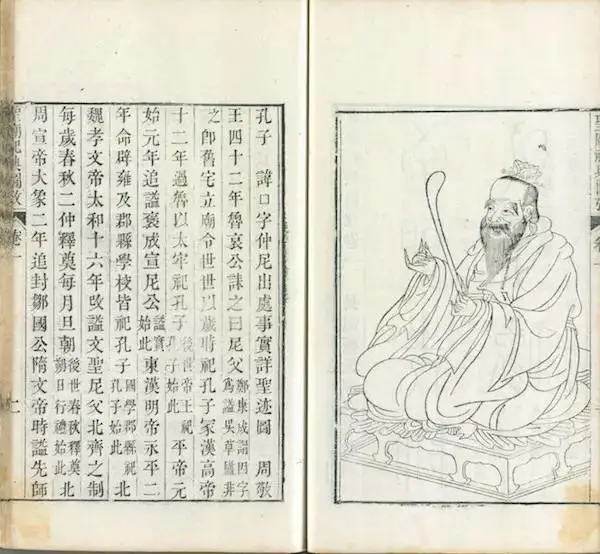 聖廟祀典圖攷 卷一
孔子 諱口字仲尼出處事實詳聖迹圖 周敬
王四十二年魯哀公誄之曰尼父鄭康成謂因字爲諡吳草廬非
之卽舊宅立廟令世世以歲時祀孔子冢漢高帝
十二年過魯以太牢祀孔子後世帝王祀孔子始此平帝元
始元年追諡褒成宣尼公諡實始此東漢明帝永平二
年命辟雍及郡縣學校皆祀孔子國學郡縣祀孔子始此北
魏孝文帝太和十六年改諡文聖尼父北齊之制
每歲春秋二仲釋奠每月旦朝後世春秋釋奠朔日行禮始此北
周宣帝大象二年追封鄒國公隋文帝時諡先師
聖廟祀典圖攷 卷一